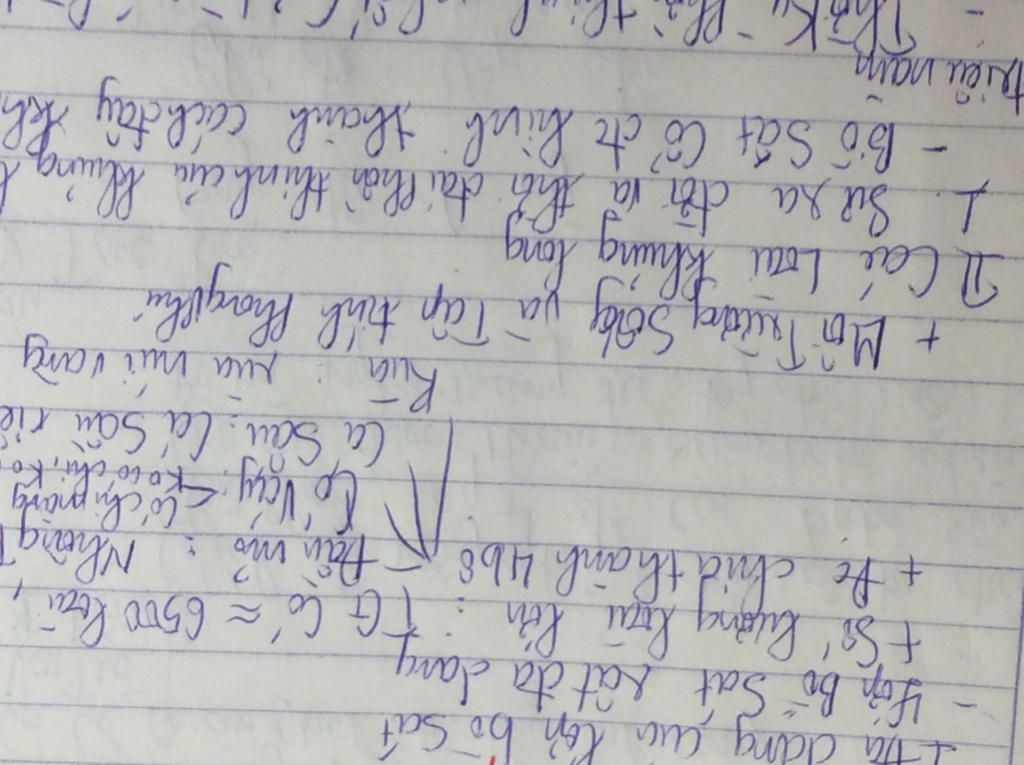 1 Đa dạng của lớp bò sát
- Lớp Bò Sát rất đa dạng
+ Số lượng loài lớn : TG Có ≈ 6500 loài,
+ Đc chia thành 4 bộ
- Đầu mỏ : Nhông T
Có Vảy < Có chi, màng
Ko có chi, Ko
Cá Sấu : Cá Sấu
Rùa : rùa núi vàng
+ Môi Trường Sống và Tập tính Phong phú
II Các Loài khủng long
1. Sự ra đời và thời đại phồn thịnh của khủng
- Bò Sát Cổ đc hình thành cách đây
triệu năm
- phồn thịnh